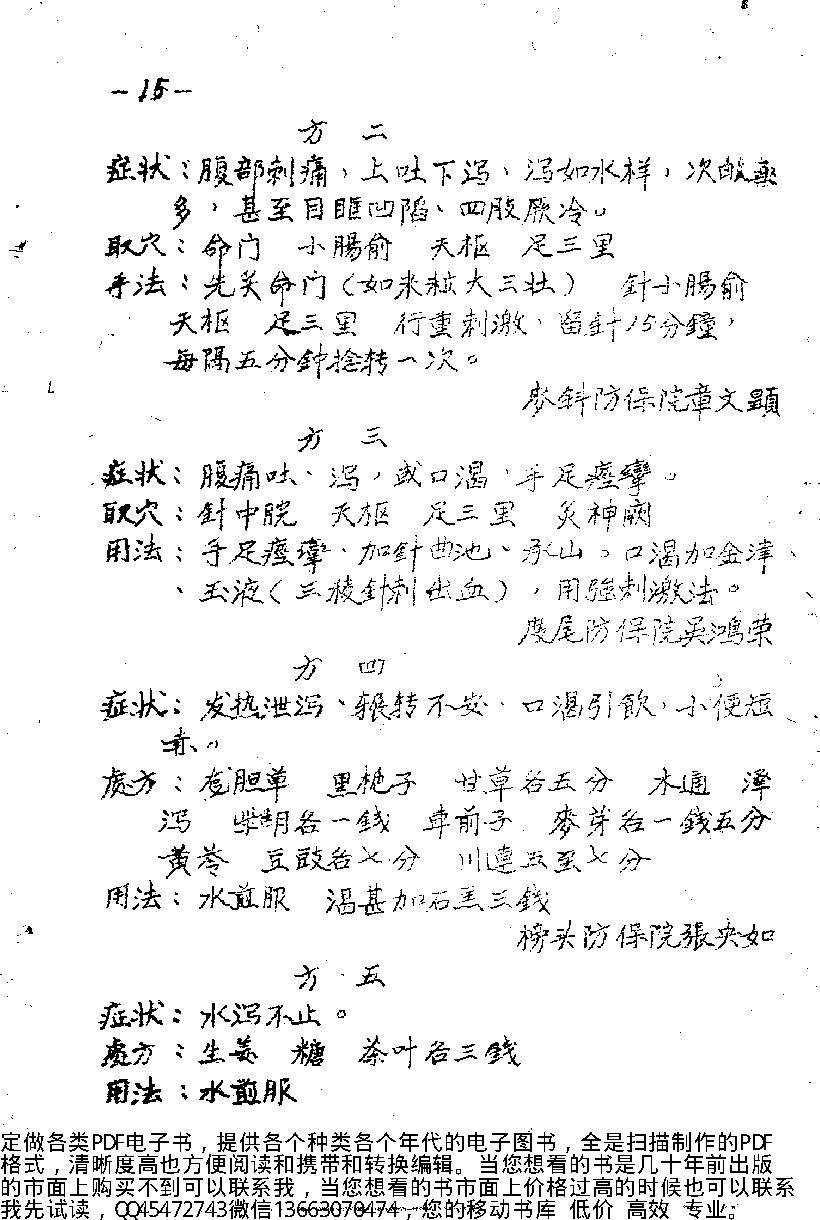 -15-
方 二
症状：腹部刺痛，上吐下泻、泻如水样，次数
多，甚至目眶凹陷、四肢厥冷。
取穴：命门 小腸俞 天枢 足三里
手法：先灸命门（如米粒大三壮） 針小腸俞
天枢 足三里 行重刺激、留針15分鐘，
每隔五分钟捻转一次。
麥斜防保院章文顕
方 三
症状：腹痛吐、泻，或口渴、手足痙攣。
取穴：針中脘 天枢 足三里 灸神闕
用法：手足痙攣、加針曲池、承山。口渴加金津
、玉液（三稜針刺出血），用強刺激法。
度尾防保院吴鴻荣
方 四
症状：发热泄泻、辗转不安、口渴引飲，小便短
赤。
處方：胆草 黑栀子 甘草各五分 木通 澤
泻 柴胡各一錢 車前子 麥芽各一錢五分
黄芩 豆豉各七分 川連五至七分
用法：水煎服 渴甚加石羔三錢
榜头防保院張央如
方 五
症状：水泻不止。
處方：生姜 糖 茶叶各三錢
用法：水煎服
定做各类PDF电子书，提供各个种类各个年代的电子图书，全是扫描制作的PDF
格式，清晰度高也方便阅读和携带和转换编辑。当您想看的书是几十年前出版
的市面上购买不到可以联系我，当您想看的书市面上价格过高的时候也可以联系
我先试读，QQ45472743微信13663070474，您的移动书库 低价 高效 专业。